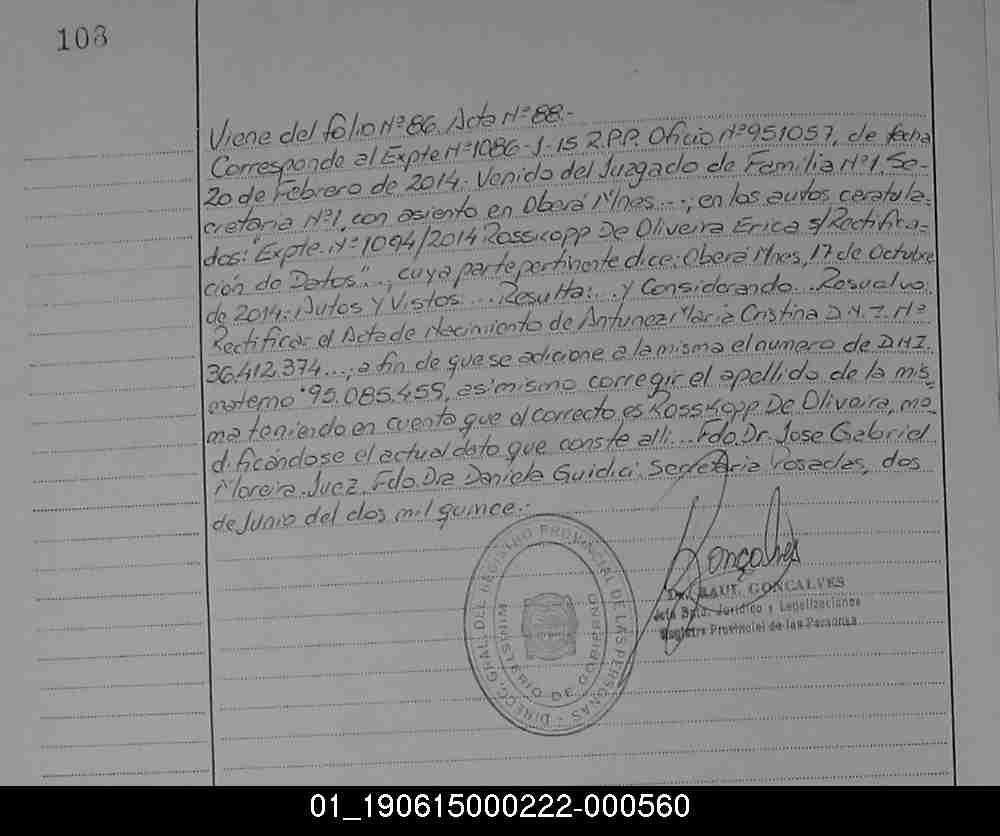 108
Viene del folio Nº 86. Acta Nº 88.-
Corresponde al Expte Nº 1086-J-15 R.P.P. Oficio Nº 951057, de fecha
20 de Febrero de 2014. Venido del Juzgado de Familia Nº 1, Se-
cretaria Nº 1, con asiento en Oberá Mnes...; en los autos caratula-
dos: "Expte. Nº 1094/2014 Rosskopp De Oliveira Erica s/Rectifica-
cion de Datos"..., cuya parte pertinente dice: Oberá Mnes, 17 de Octubre
de 2014: Autos y Vistos:...Resulta:...y Considerando...Resuelvo:
Rectificar el Acta de Nacimiento de Antunez Maria Cristina D.N.I. Nº
36.412.374...; a fin de que se adicione a la misma el numero de D.N.I.
materno 95.085.459, asimismo corregir el apellido de la mis-
ma teniendo en cuenta que el correcto es Rosskopp De Oliveira, mo-
dificándose el actual dato que conste alli...Fdo. Dr. Jose Gabriel
Moreira. Juez, Fdo. Dra Daniela Guidici, Secretaria Posadas, dos
de Junio del dos mil quince.-
Goncalves
Dr. RAUL GONCALVES
Jefe Dpto. Jurídico y Legalizaciones
Registro Provincial de las Personas
DIRECC. GRAL. DEL REGISTRO PROVINCIAL DE LAS PERSONAS
MINISTERIO DE GOBIERNO
01_190615000222-000560